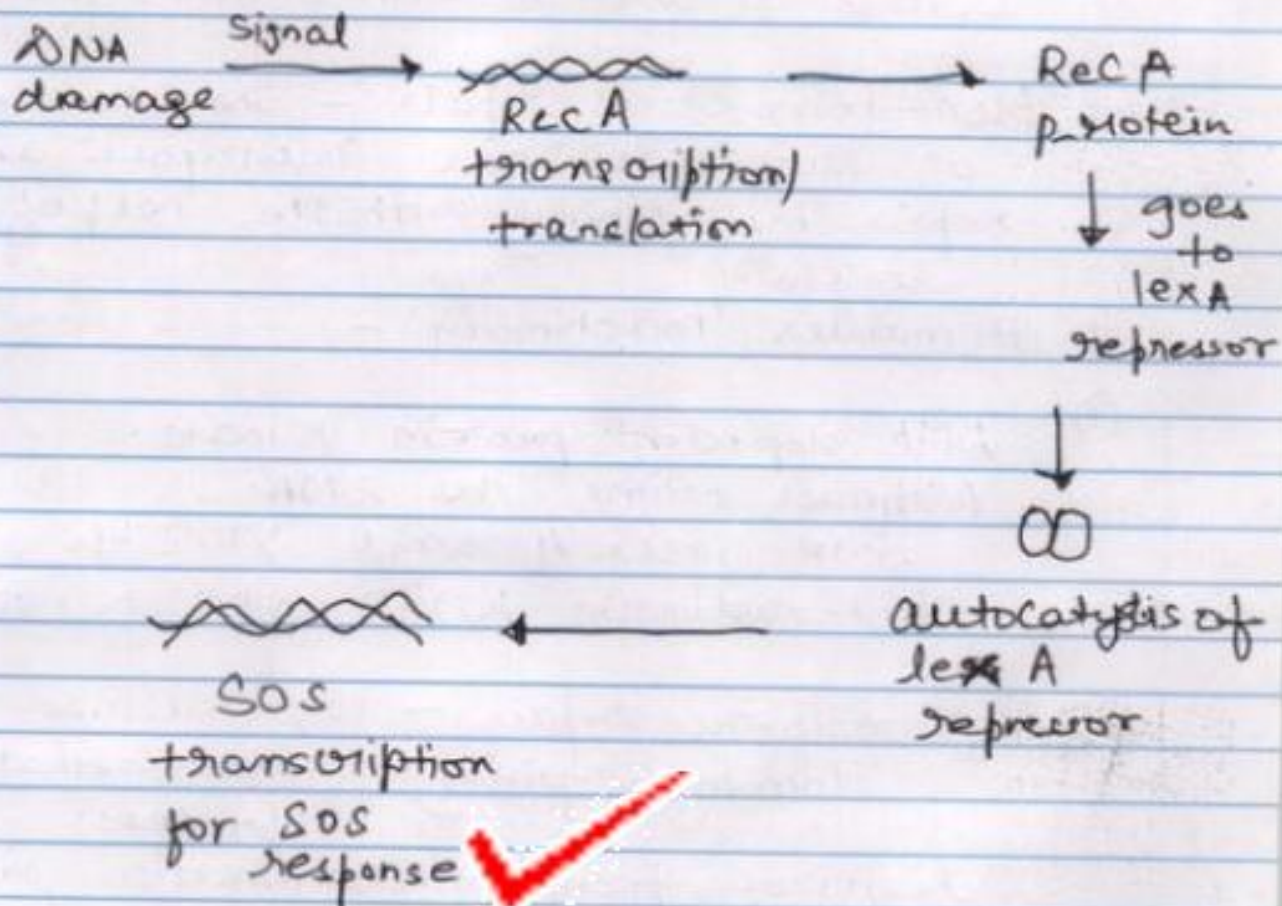 DNA damage
Signal
RecA
transcription/
translation
RecA
protein
goes
to
lexA
repressor
autocatysis of
lex A
repressor
SOS
transcription
for SOS
response